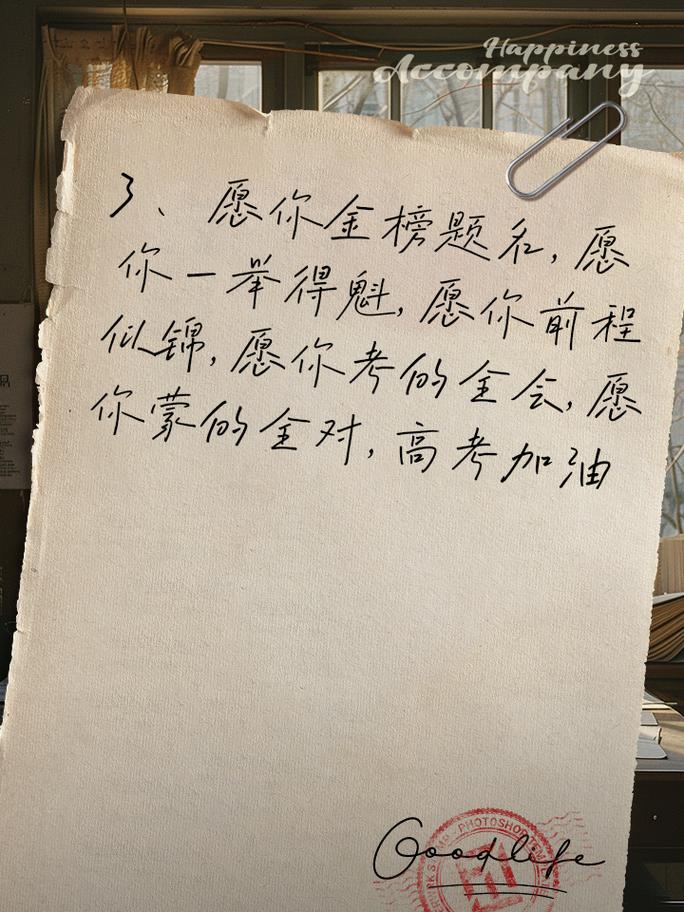 Happiness
Accompany
3、愿你金榜题名,愿
你一举得魁,愿你前程
似锦,愿你考的全会,愿
你蒙的全对,高考加油
PHOTOSHOP
Goodlife